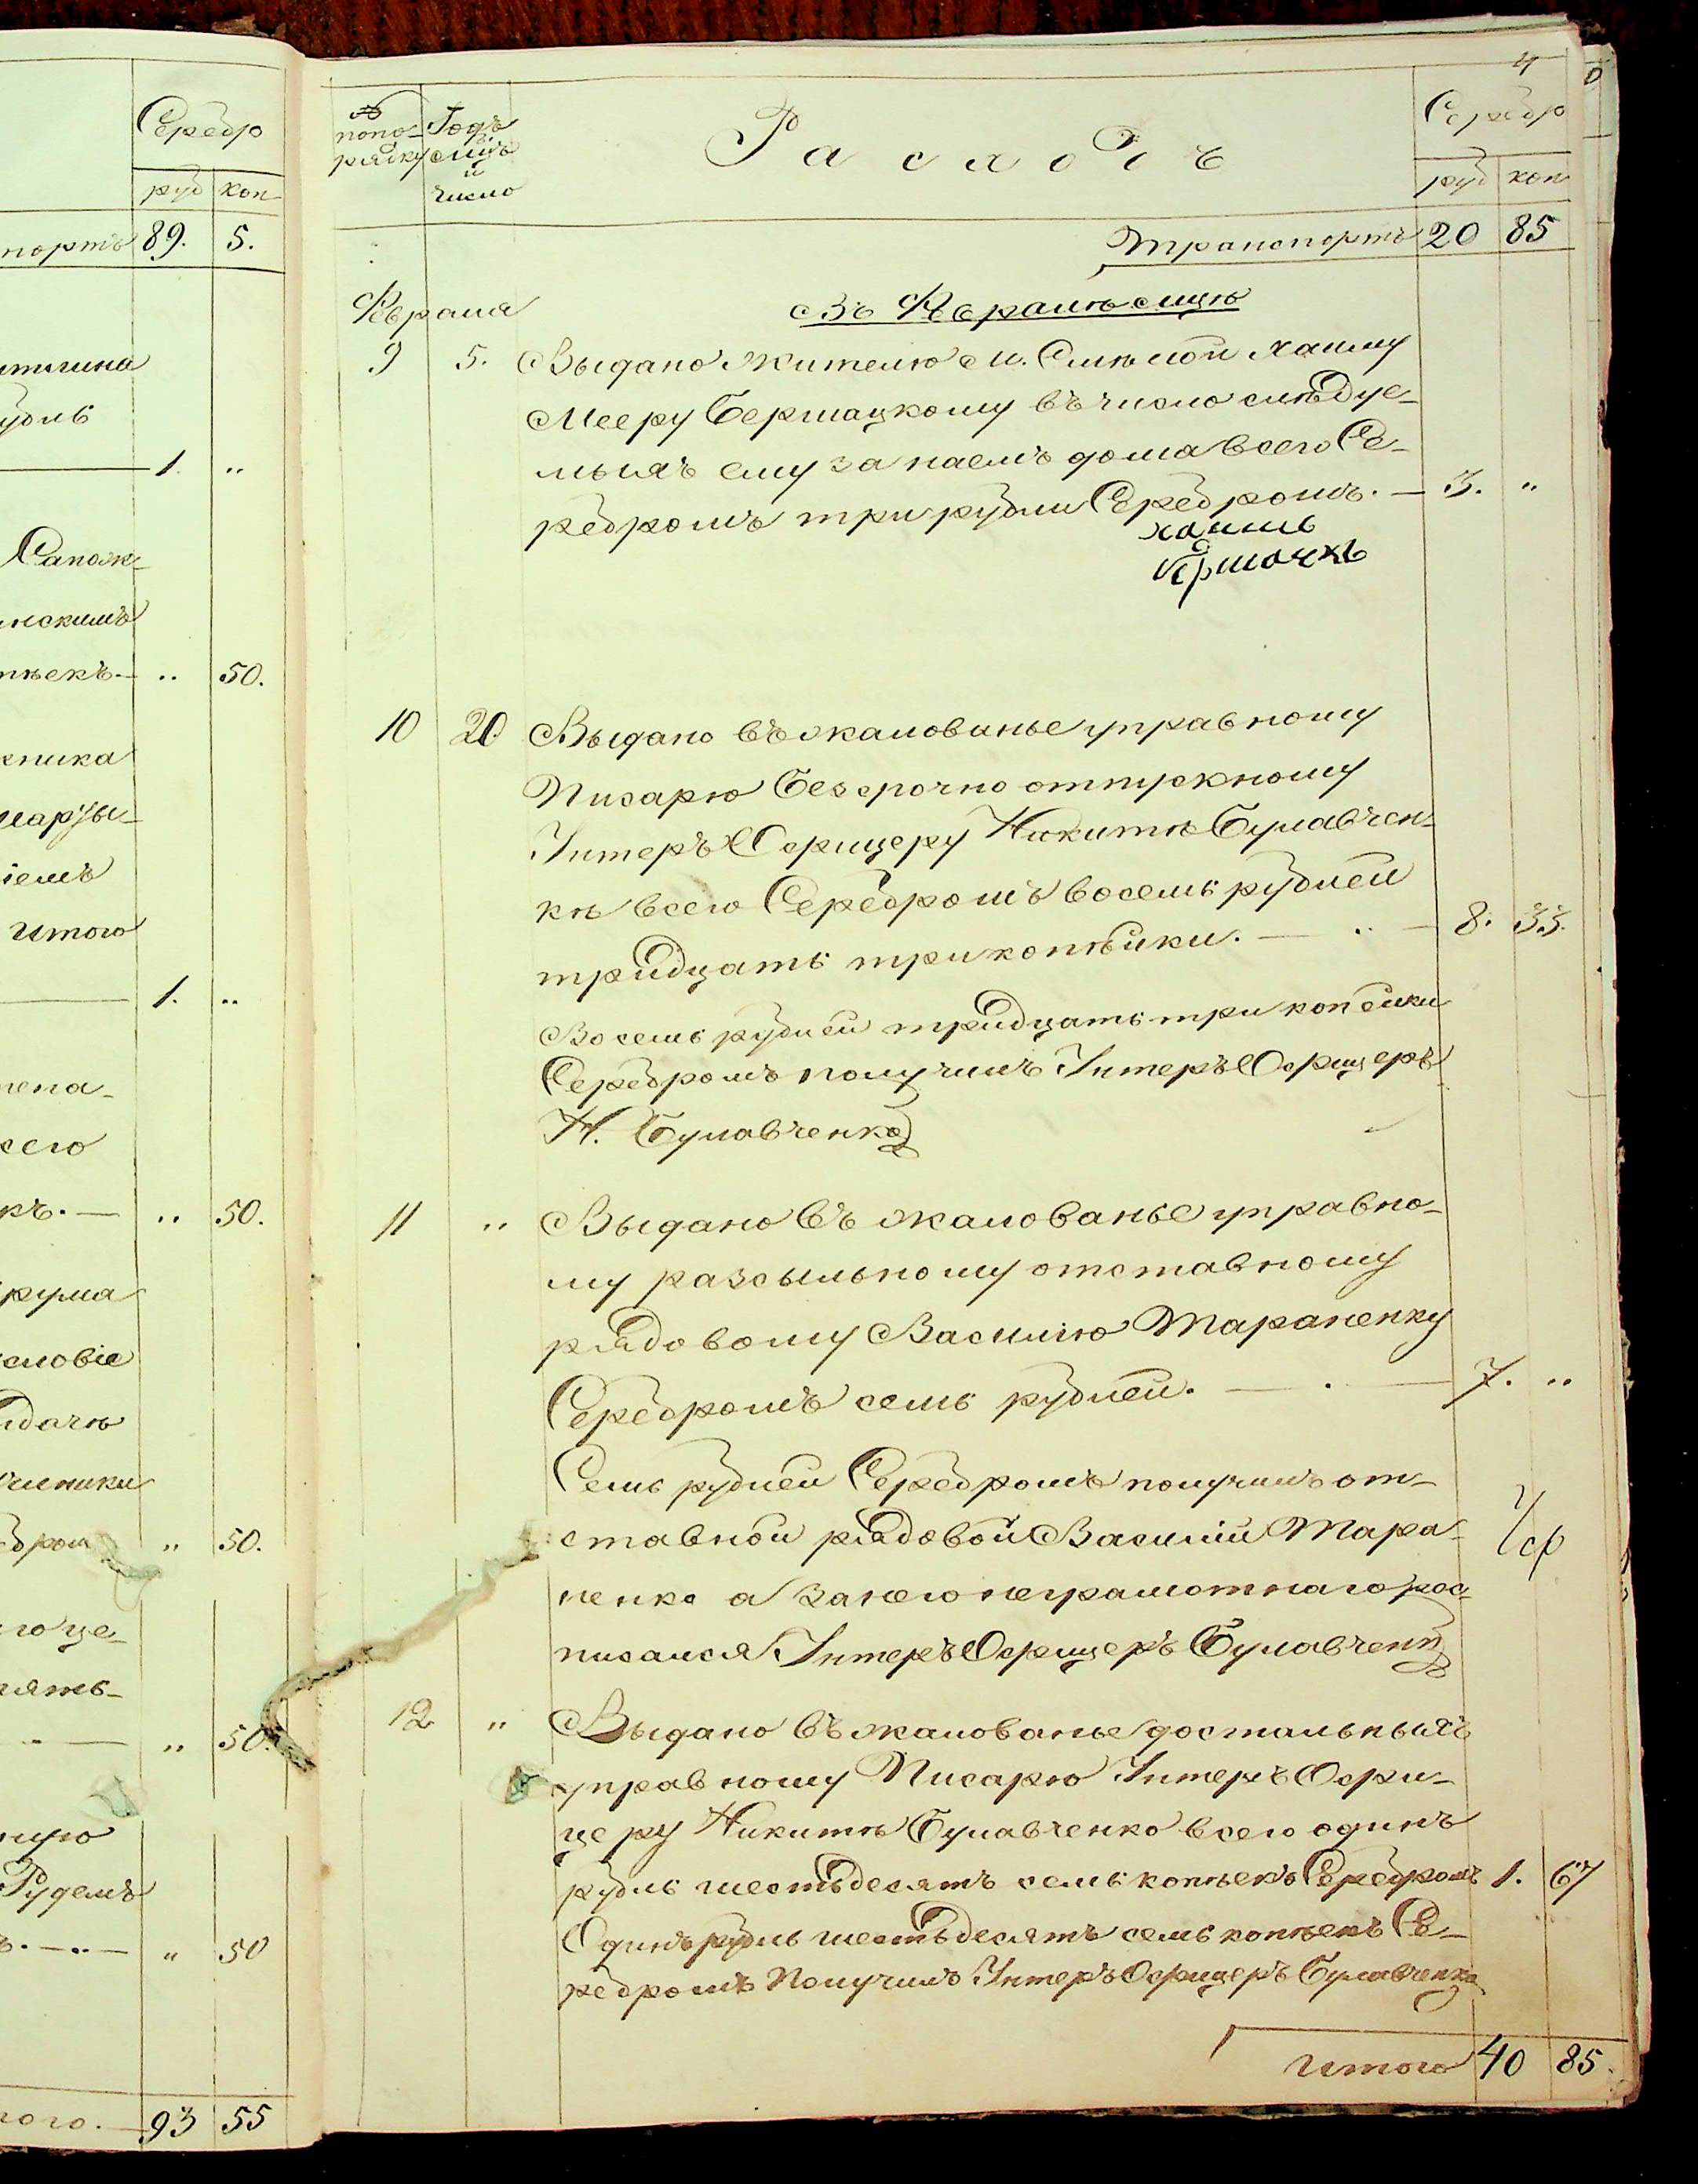 Серебр
руб коп
портъ 89. 5.
1. ..
Сапож-
нскимъ
пѣекъ.— .. 50.
ника
іемъ
итого
1. ..
сего
къ.— .. 50.
словіе
.. 50.
го це-
.. 50.
Рудемъ
.. 50
того. 93 55
4
№ попорядку
Годъ мцъ и число
Расходъ
Серебр
руб коп
Транспортъ 20 85
Февраля
Въ Февралѣ мцѣ
9 5. Выдано жителю м. Смѣлой Хаиму
Мееру Бершацкому въ число слѣдуе-
мыхъ ему за наемъ дома всего Се-
ребромъ три рубли Серебромъ.— 3. ..
хаимъ
бершочкъ
10 20 Выдано въ жалованье управному
Писарю безсрочно отпускному
Унтеръ Офицеру Никитѣ Булавчен-
кѣ всего Серебромъ восемь рублей
тридцать три копѣйки.— .. — 8. 33.
Восемь рублей тридцать три копейки
Серебромъ получилъ Унтеръ Офицеръ
Н. Булавченко
11 .. Выдано въ жалованье управно-
му разсыльному отставному
рядовому Василію Тараненку
Серебромъ семь рублей.— . — 7. ..
Семь рублей Серебромъ получилъ от-
ставной рядовой Василій Тара-
ненко а за него неграмотнаго рос-
писался Унтеръ Офицеръ Булавченко
12 .. Выдано въ жалованье достальныхъ
управному Писарю Унтеръ Офи-
церу Никитѣ Булавченко всего одинъ
рубль шестьдесятъ семь копѣекъ Серебромъ 1. 67
Одинъ рубль шестьдесятъ семь копѣекъ Се-
ребромъ Получилъ Унтеръ Офицеръ Булавченко
Итого 40 85.